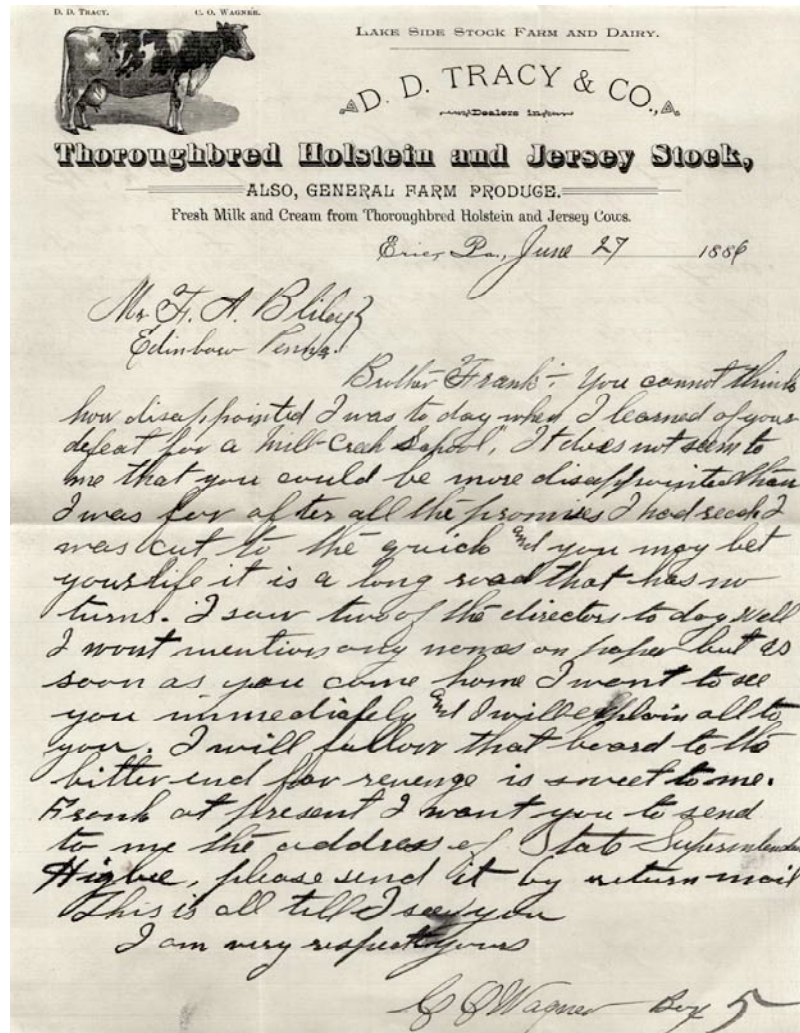 D. D. TRACY. C. O. WAGNER.
LAKE SIDE STOCK FARM AND DAIRY.
D. D. TRACY & CO.,
Dealers in
Thoroughbred Holstein and Jersey Stock,
ALSO, GENERAL FARM PRODUCE.
Fresh Milk and Cream from Thoroughbred Holstein and Jersey Cows.
Erie, Pa., June 27 1886
Mr. F. A. Bliley
Edinboro Penna.
Brother Frank: You cannot think
how disappointed I was to day when I learned of your
defeat for a "Mill-Creek School", It does not seem to
me that you could be more disappointed than
I was for after all the promises I had I
was cut to the quick and you may bet
your life it is a long road that has no
turns. I saw two of the directors to day well
I wont mention any names on paper but as
soon as you come home I want to see
you immediately and I will explain all to
you. I will follow that board to the
bitter end for revenge is sweet to me.
Frank at present I want you to send
to me the address of State Superintendent
Higbee, please send it by return mail
This is all till I see you
I am very respect yours
C O Wagner Box 5